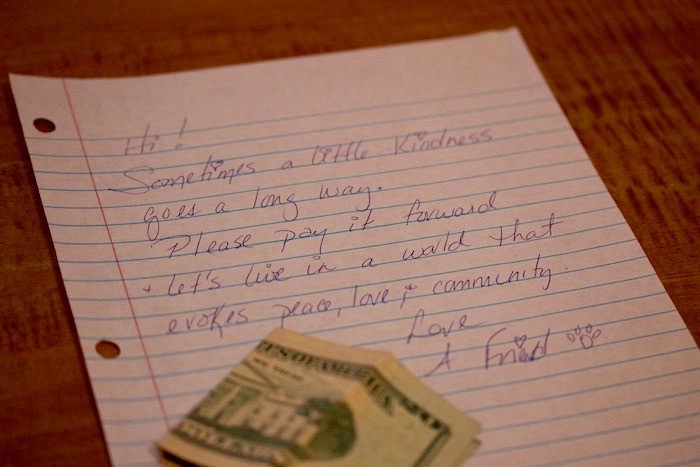 Hi!
Sometimes a little Kindness
goes a long way.
Please pay it forward
+ let's live in a world that
evokes peace, love & community.
Love
A Friend